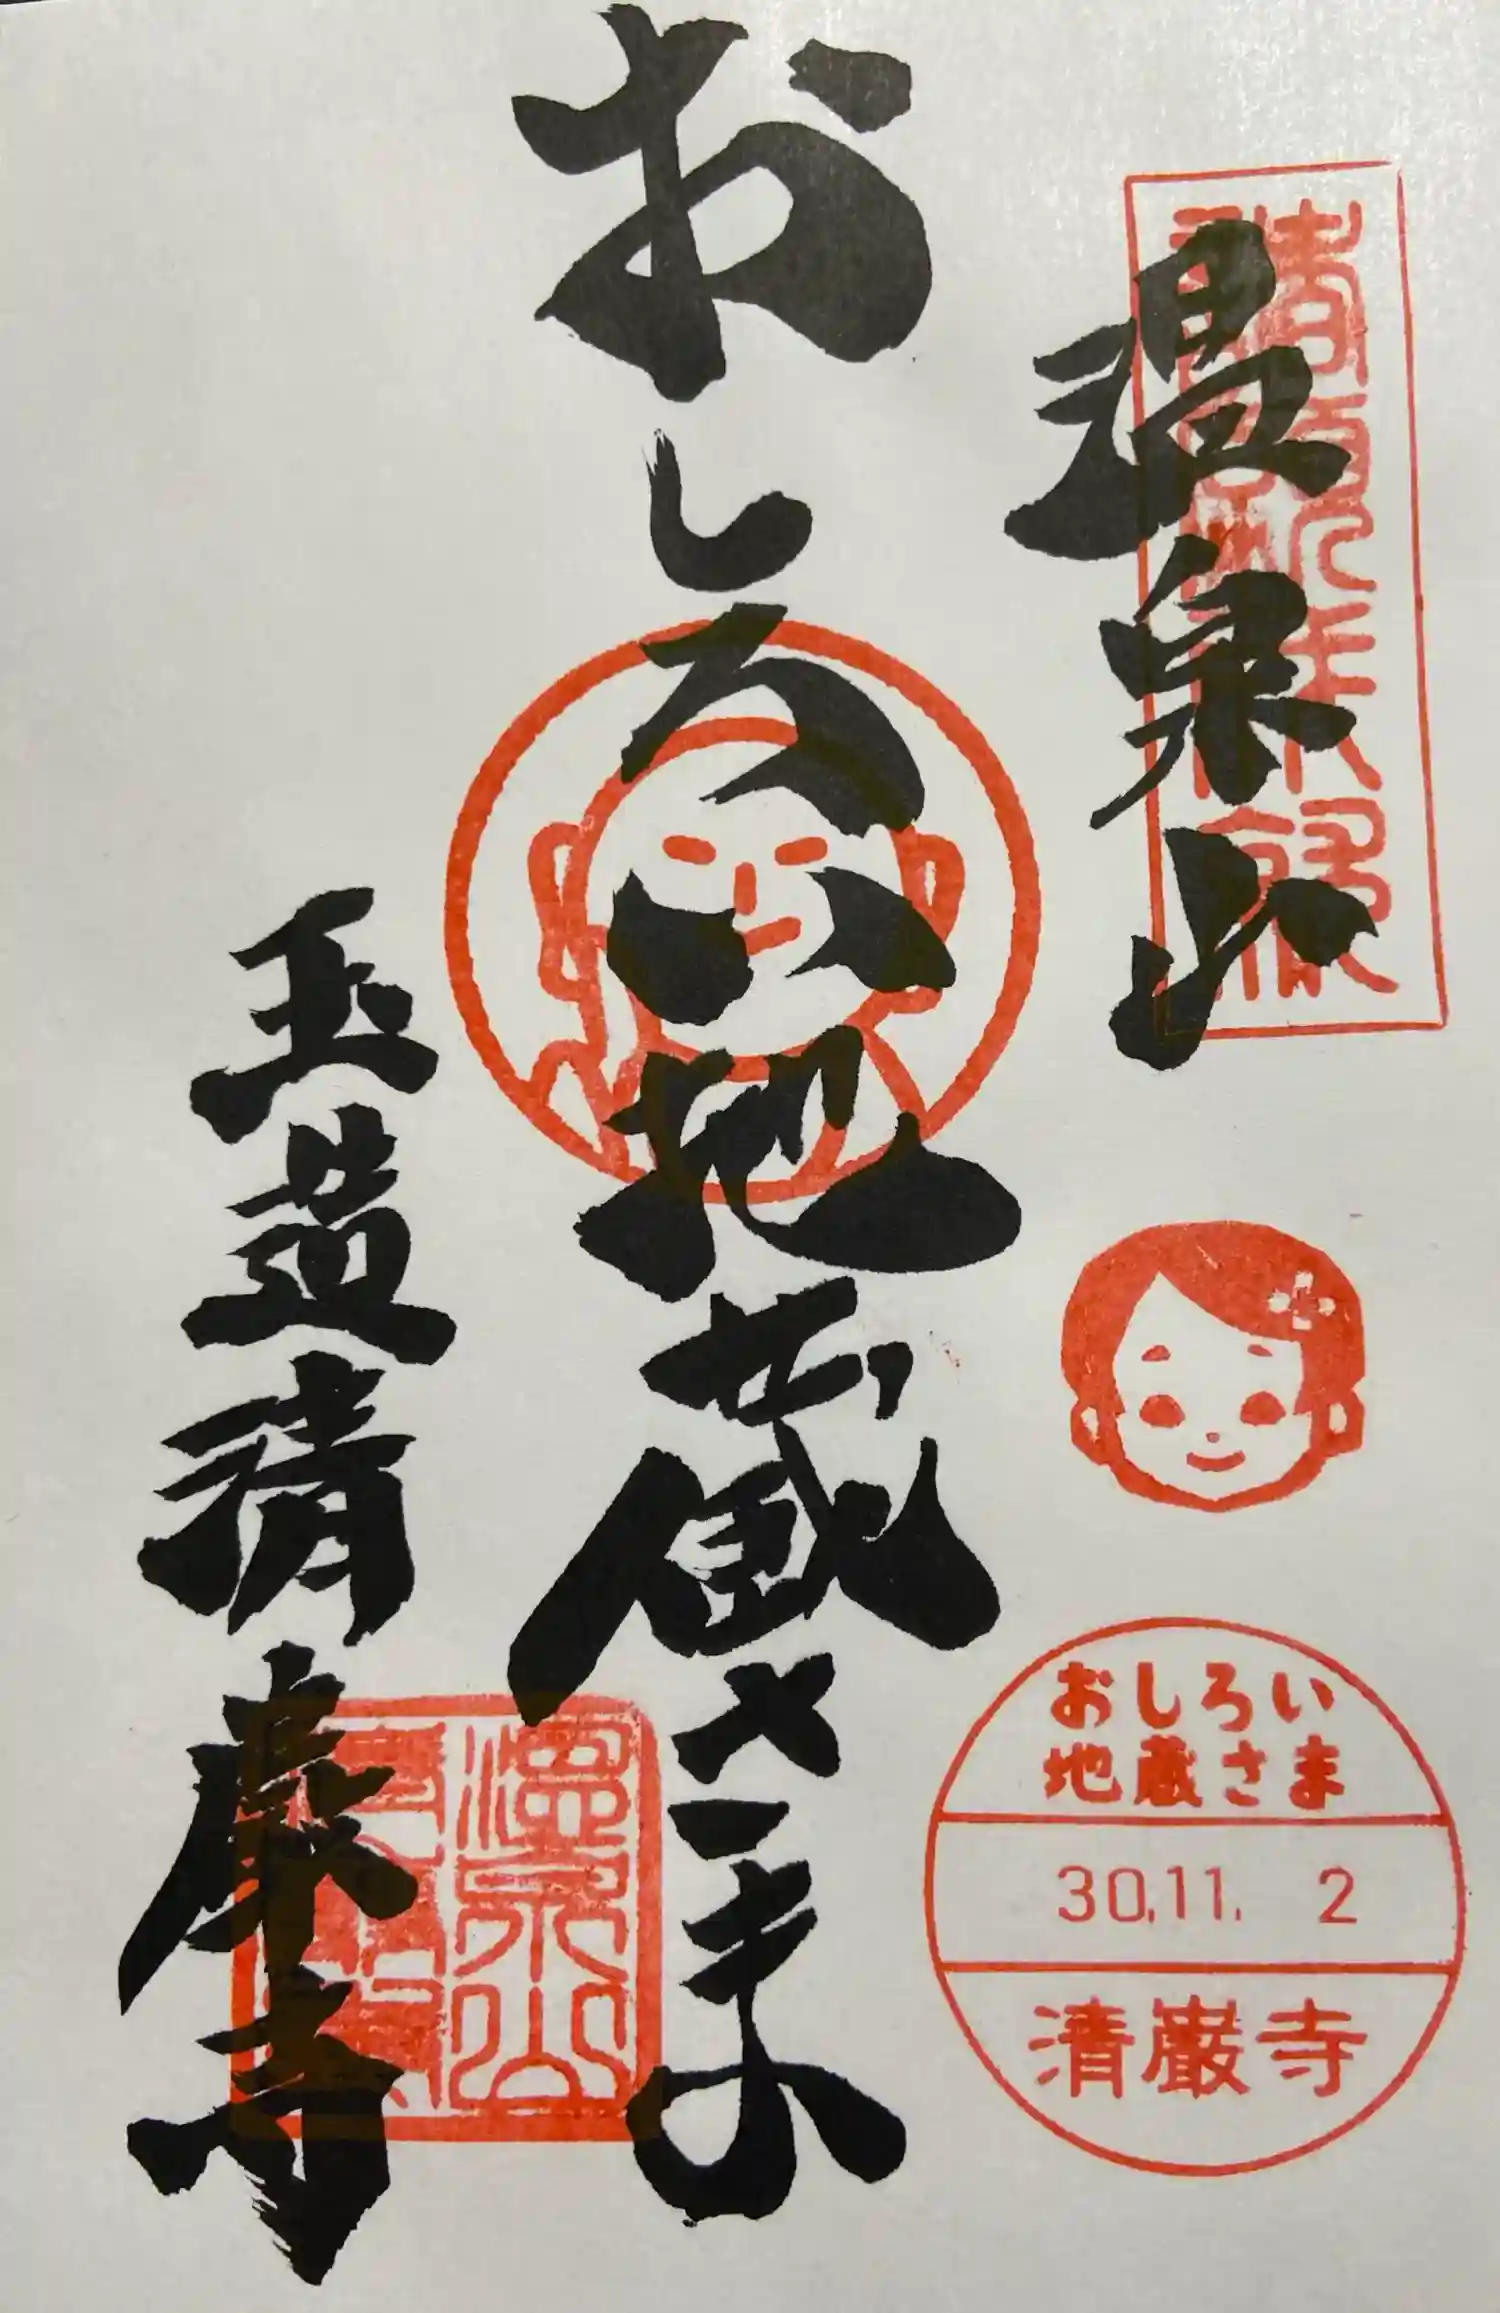 温泉山
おしろい地蔵さま
玉造清巌寺
おしろい
地蔵さま
30.11. 2
清巌寺
温泉山